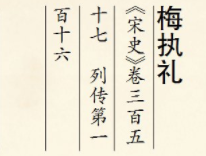 梅执礼
《宋史》卷三百五
十七 列传第一
百十六